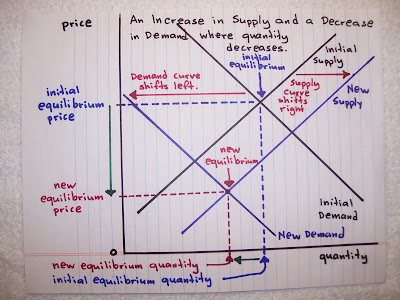 price
An Increase in Supply and a Decrease
in Demand where quantity
decreases.
initial
equilibrium
Initial
Supply
Demand curve
shifts left.
Supply
curve
shifts
right
New
Supply
initial
equilibrium
price
new
equilibrium
new
equilibrium
price
Initial
Demand
New Demand
O
quantity
new equilibrium quantity
initial equilibrium quantity